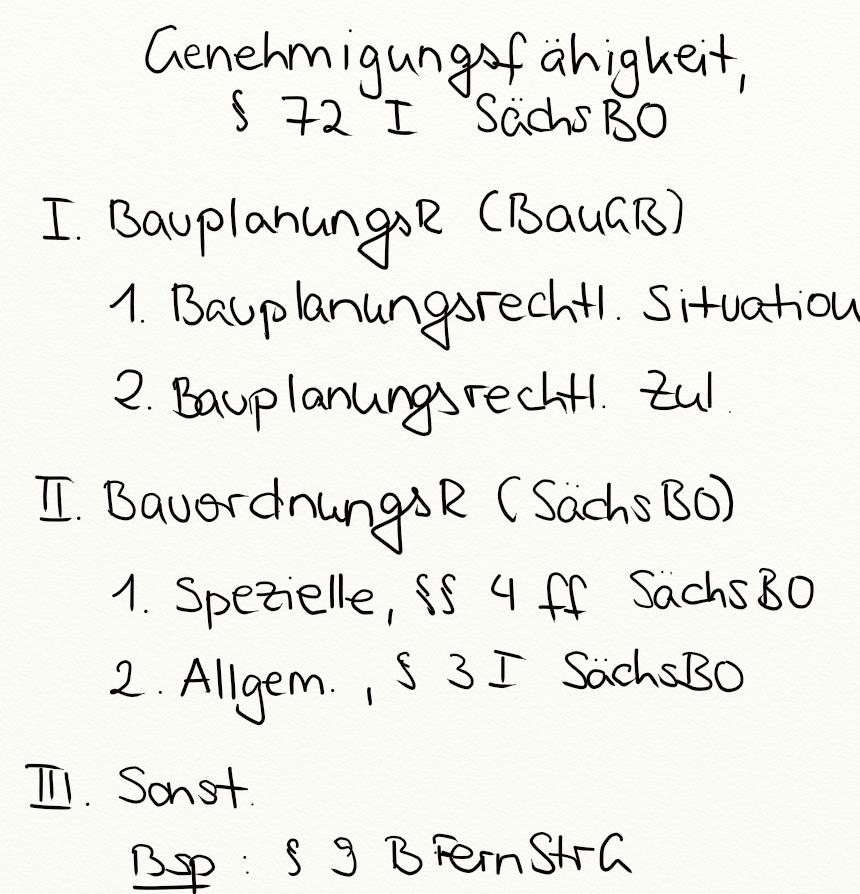 Genehmigungsfähigkeit,
§ 72 I SächsBO
I. BauplanungsR (BauGB)
1. Bauplanungsrechtl. Situation
2. Bauplanungsrechtl. Zul.
II. BauordnungsR (SächsBO)
1. Spezielle, §§ 4 ff SächsBO
2. Allgem., § 3 I SächsBO
III. Sonst.
Bsp: § 9 BFernStrG